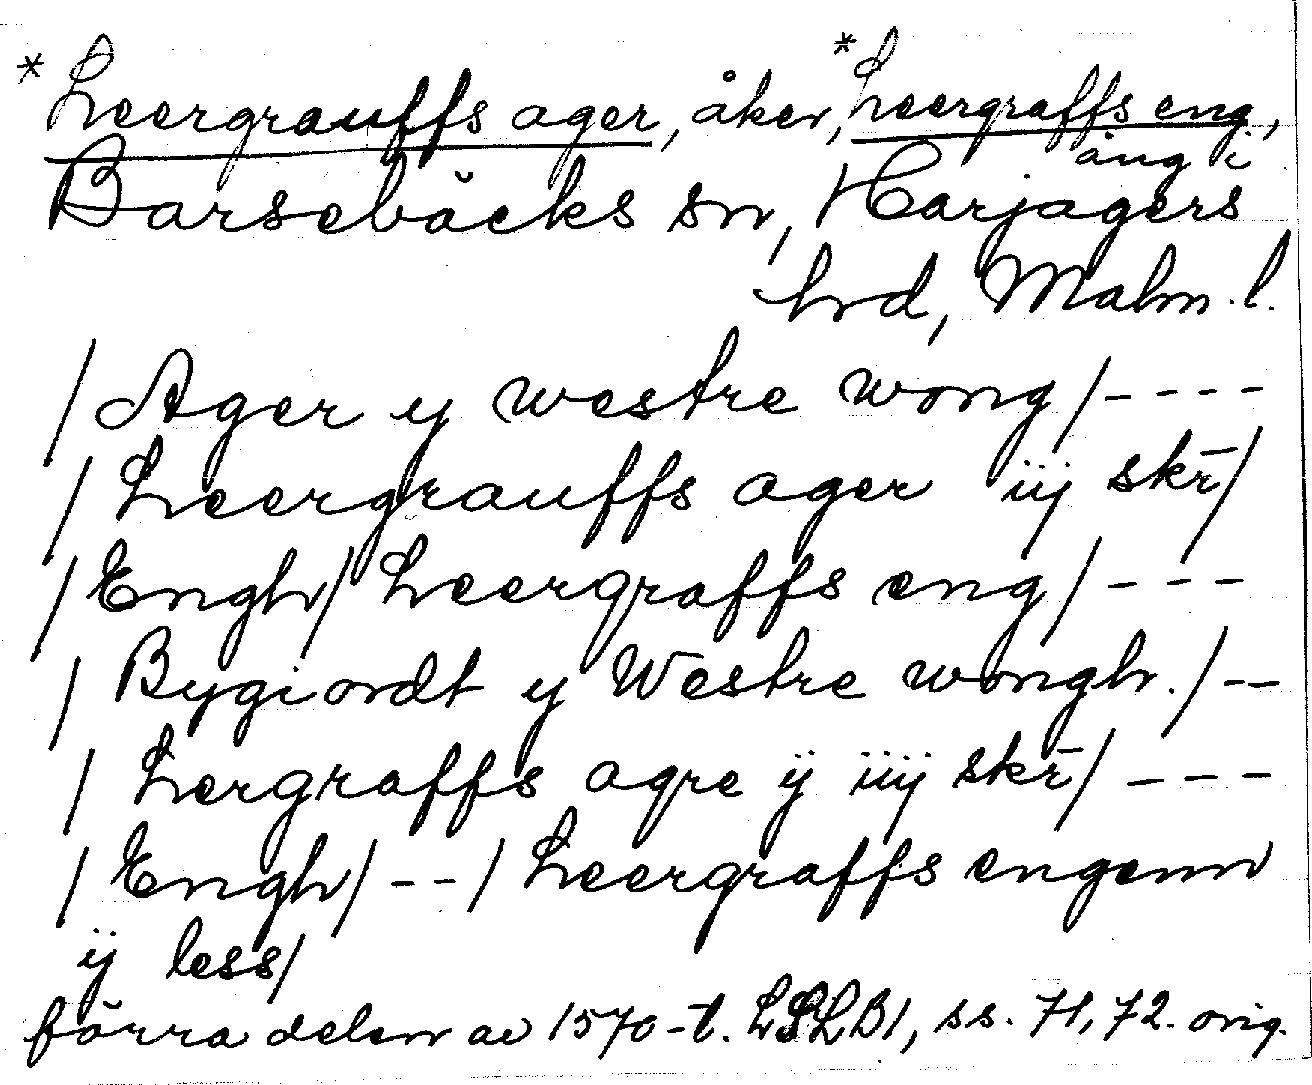 *Leergrauffs ager, åker, *Leergraffs eng,
äng i
Barsebäcks sn, Harjagers
hrd, Malm. l.
/Ager y westre wong/----
/Leergrauffs ager iij skr̄/
/Engh/ Leergraffs eng/---
/Bygiordt y Westre wongh./--
/Lergraffs agre ij iiij skr̄/---
/Engh/--/Leergraffs engenn
ij less/
förra delen av 1570-t. LSLB1, ss. 71, 72. orig.